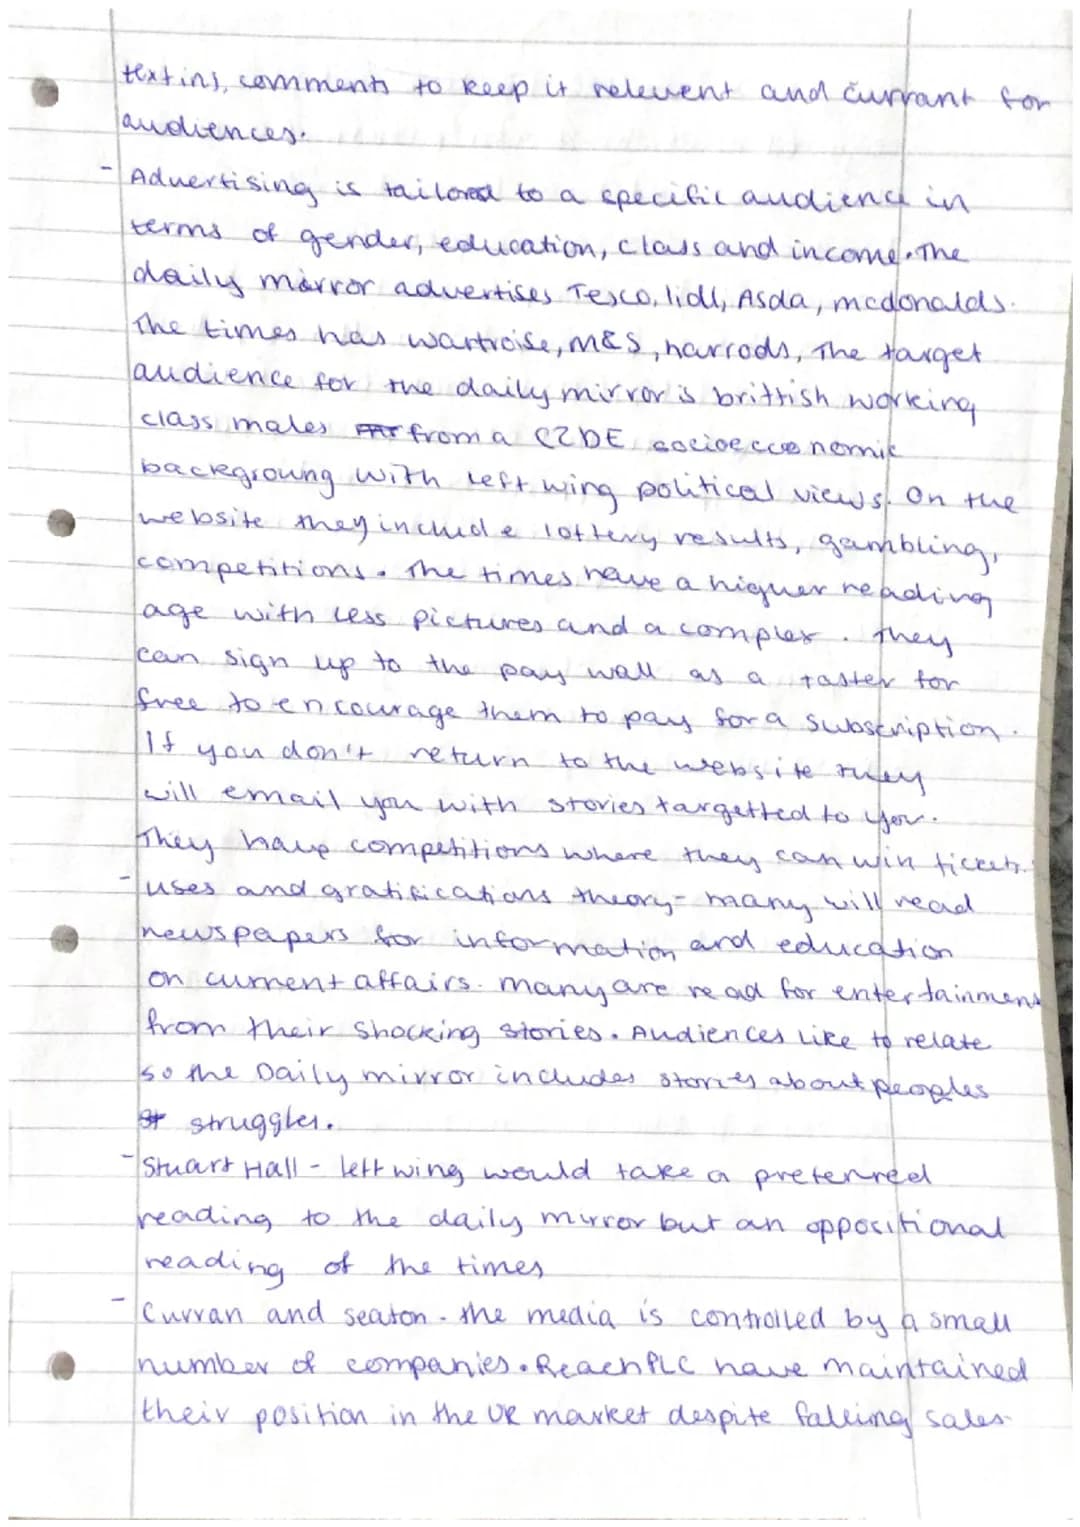 textins, comments to keep it relevent and currant for
audiences.
- Advertising is tailored to a specific audience in
terms of gender, education, class and income. The
daily mirror advertises Tesco, lidl, Asda, mcdonalds.
The times has wartroise, M&S, harrods, The target
audience for the daily mirror is brittish working
class males from a C2DE socioecconomic
backgroung with left wing political views. On the
website they include lottery results, gambling,
competitions. The times have a higher reading
age with less pictures and a complex. They
can sign up to the pay wall as a taster for
free to encourage them to pay for a subscription.
If you don't return to the website they
will email you with stories targetted to you.
They have competitions where they can win tickets.
- uses and gratifications theory - many will read
newspapers for information and education
on current affairs. many are read for entertainment
from their shocking stories. Audiences like to relate
so the Daily mirror includes stories about peoples
struggles.
- Stuart Hall - left wing would take a preferred
reading to the daily mirror but an oppositional
reading of the times
- Curran and seaton - the media is controlled by a small
number of companies. Reach PLC have maintained
their position in the UK market despite falling sales.